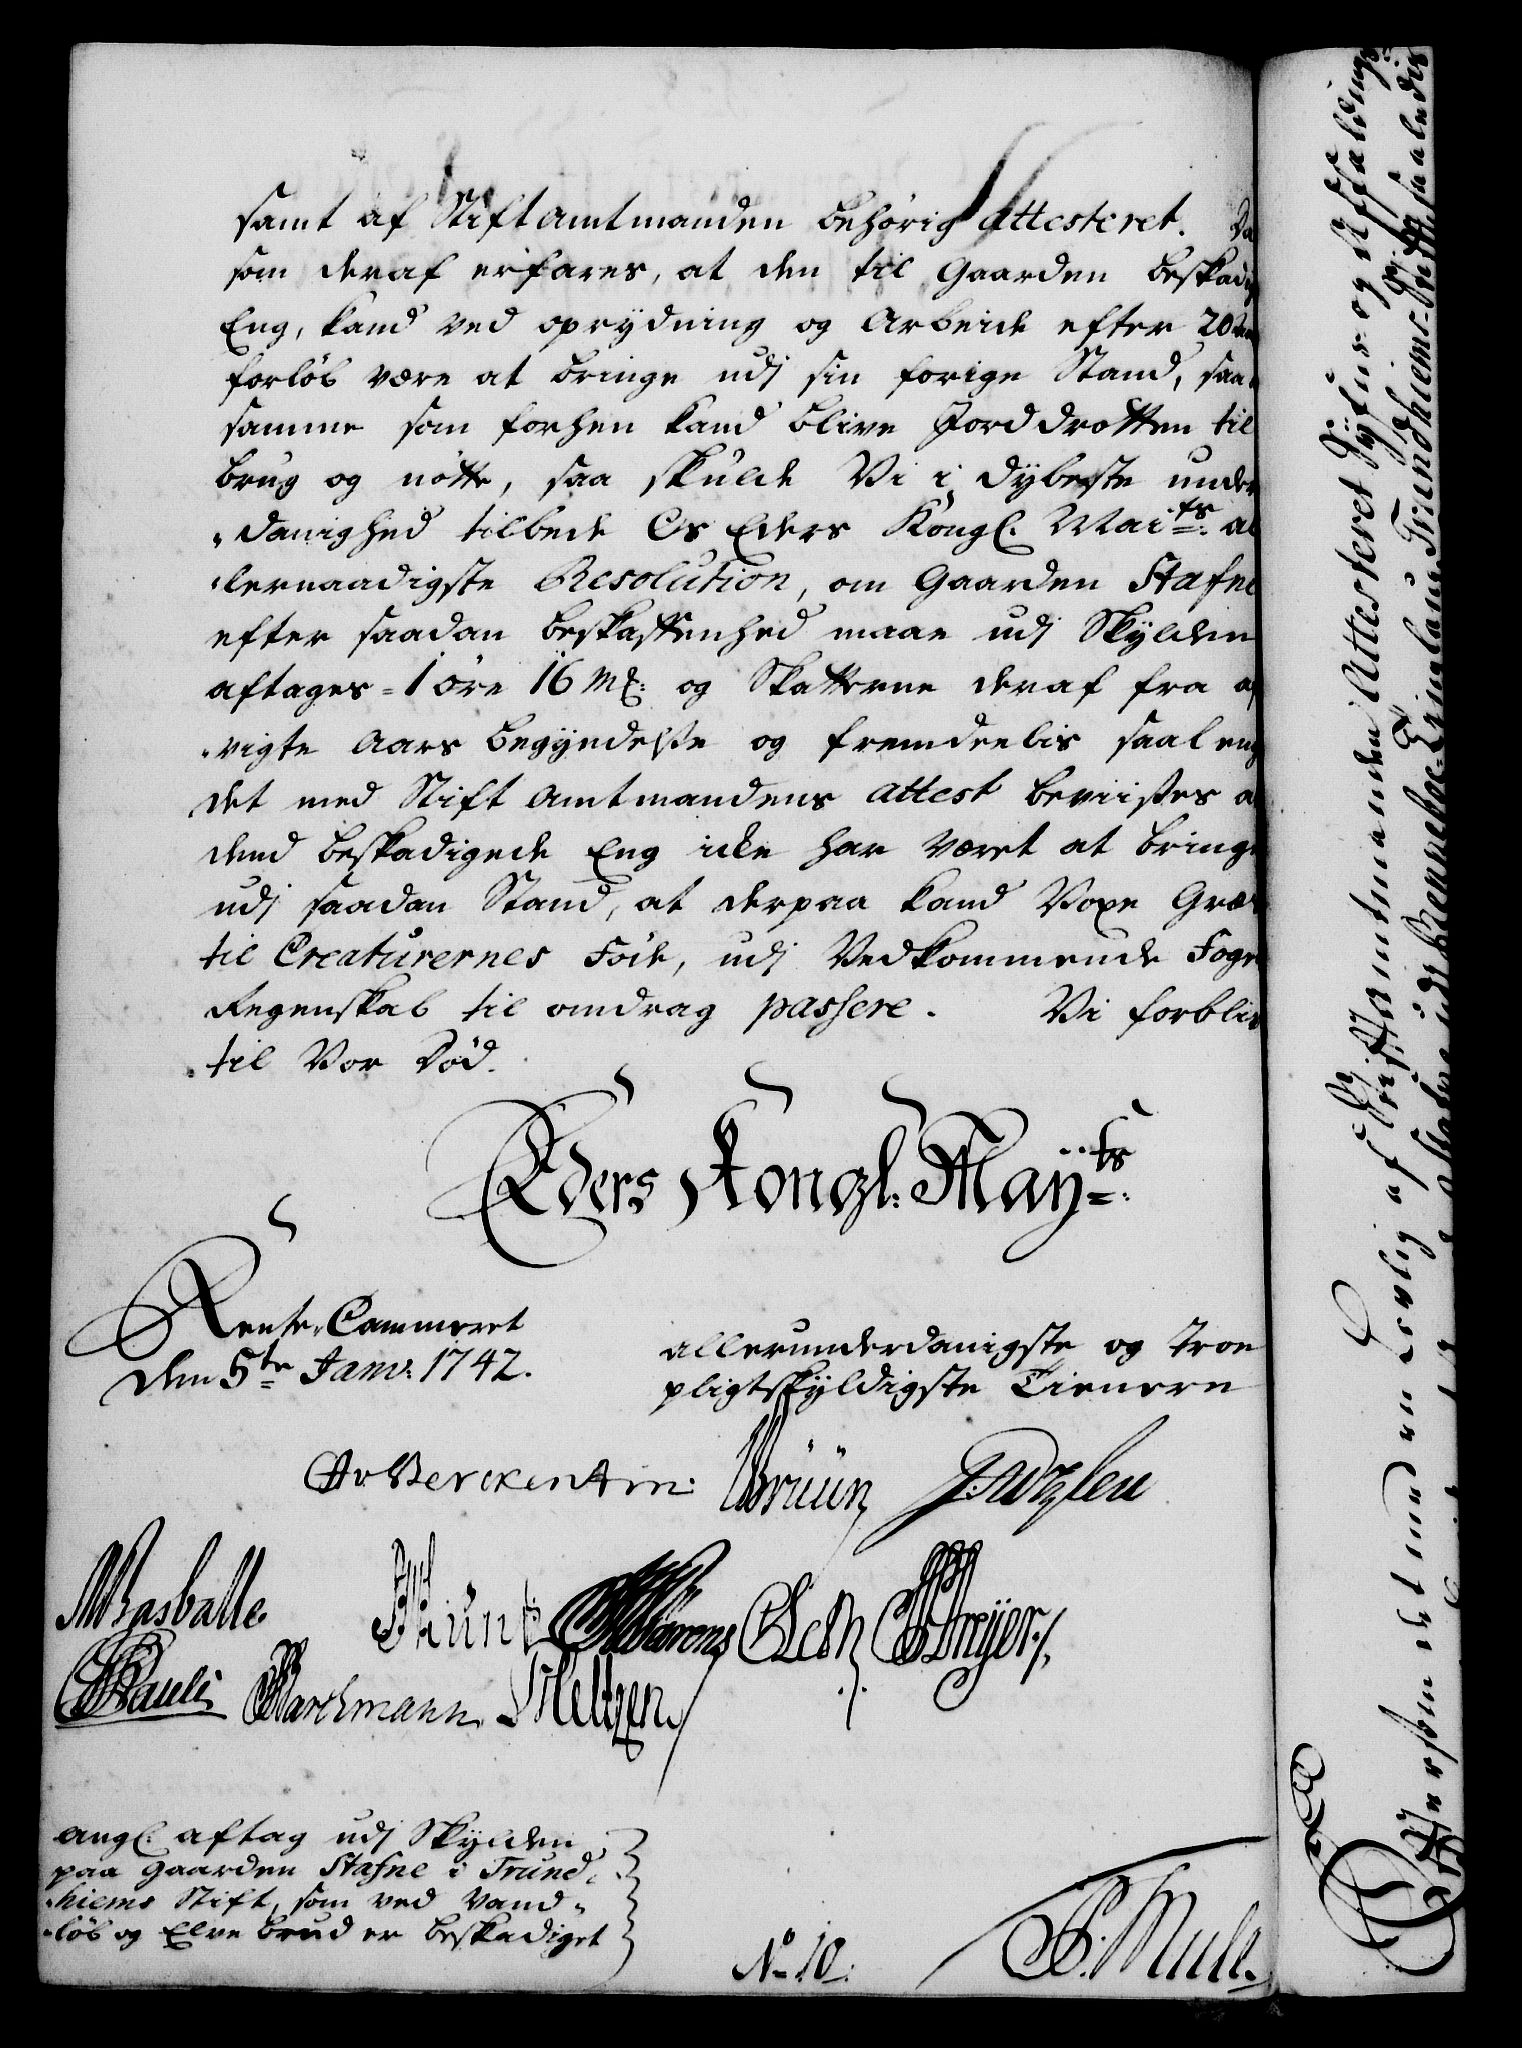 samt af Stiftamtmanden behørig attesteret. Da
som deraf erfares, at den til Gaarden beskadig
Eng, kand ved oprydning og Arbeide efter 20
forløb være at bringe udj sin forige Stand, saa
samme som forhen kand blive Jorddrotten til
brug og nøtte, saa skulde Vi i dybeste under
danighed tilbede Os Eders Kongl. Maits: al
lernaadigste Resolution, om Gaarden Stafne
efter saadan beskaffenhed maae udj Skylden
aftages = 1 øre 16 Mk: og Skatterne deraf fra af
vigte Aars begyndelse og fremdeelis saaleng
det med Stift Amtmandens attest beviises a
dend beskadigede Eng icke har været at bringe
udj saadan Stand, at derpaa kand Voxe Græs
til Creaturernes Føde, udj Vedkommende Foge
Regenskab til omdrag passere. Vi forbliv
til Vor Død.
Eders Kongl: Mayts:
Rente-Cammeret
den 5te Janv: 1742.
allerunderdanigste og troe
pligtskyldigste Tienere
Berckentin: Bruun
Basballe.
Pauli Marchmann
angl: aftag udj Skylden
paa Gaarden Stafne i Trund,
hiems Stift, som ved Vand-
løb og Elve brud er beskadiget
No 10.
Mull.
Eftersom det med en Lovlig af Stiftamtmanden Attesteret Syfns og Affældings
Gaarden Stafne udi Renneboe Tinglaug Trundhiems Stift saaledes